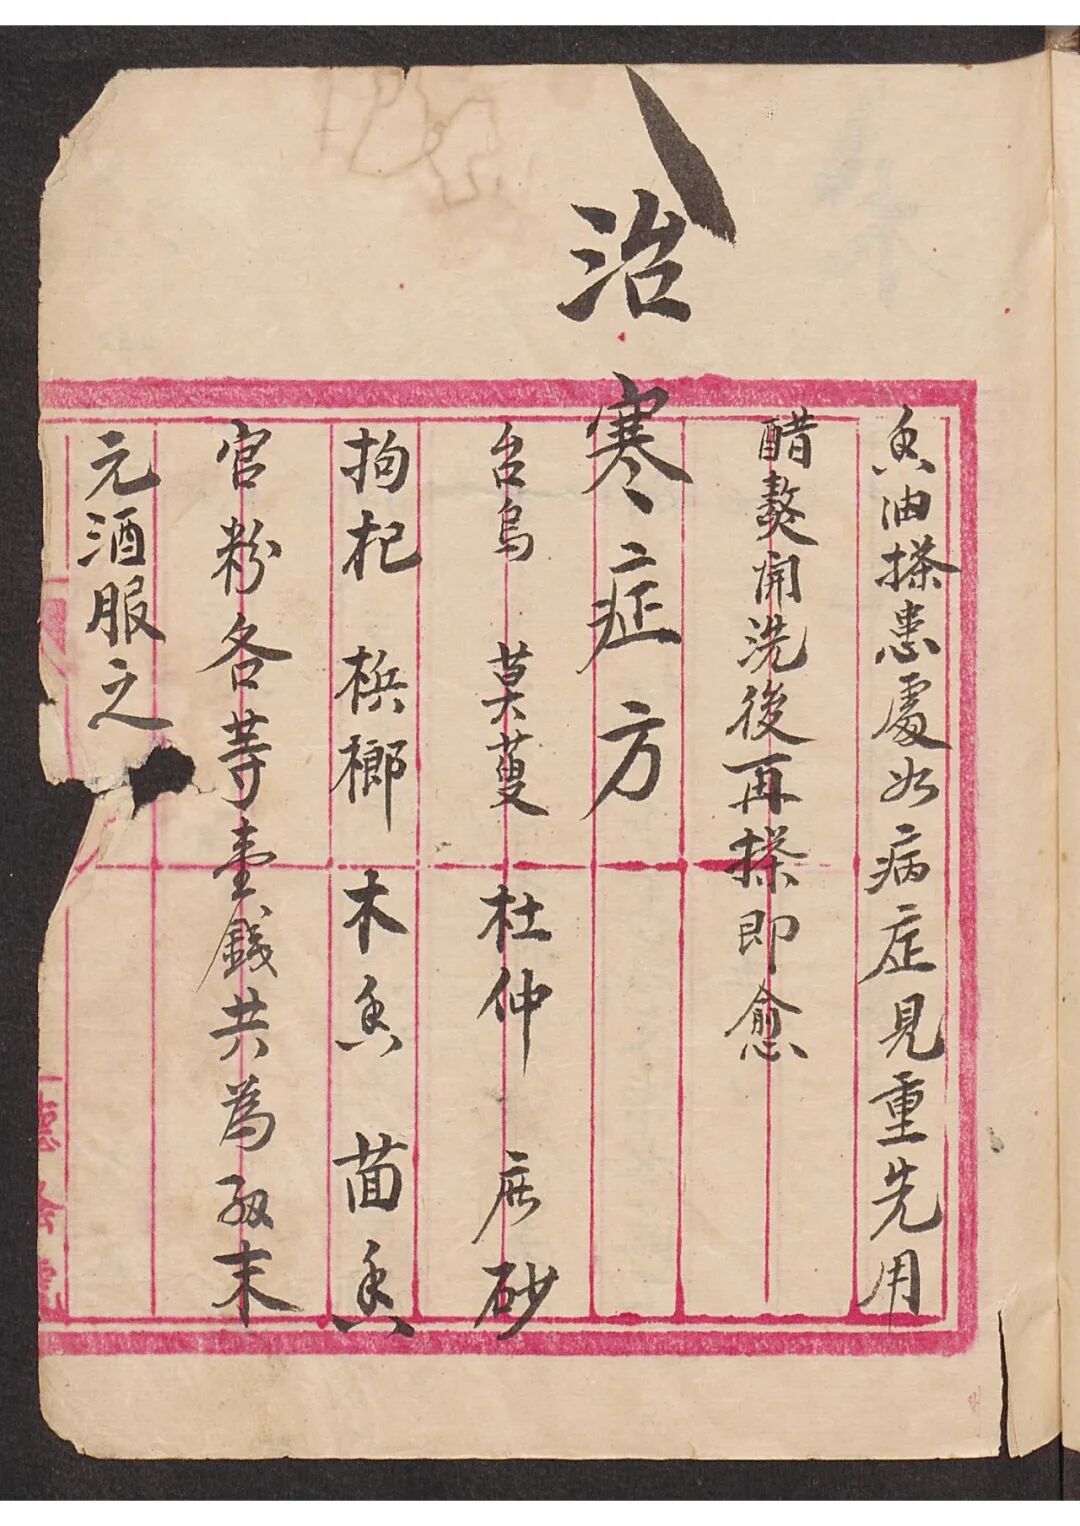 香油搽患處如病症見重先用
醋熬開洗後再搽即愈
治寒症方
台烏 莫蔞 杜仲 庶砂
拘杞 梹榔 木香 茴香
官粉各等壹錢共為細末
元酒服之